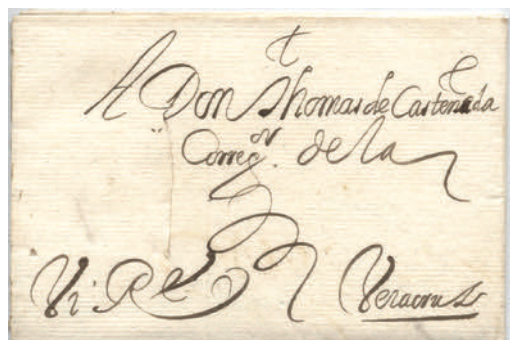 A Don Thomas de Casteñeda
Correg.ᵒʳ de la
Veracruz